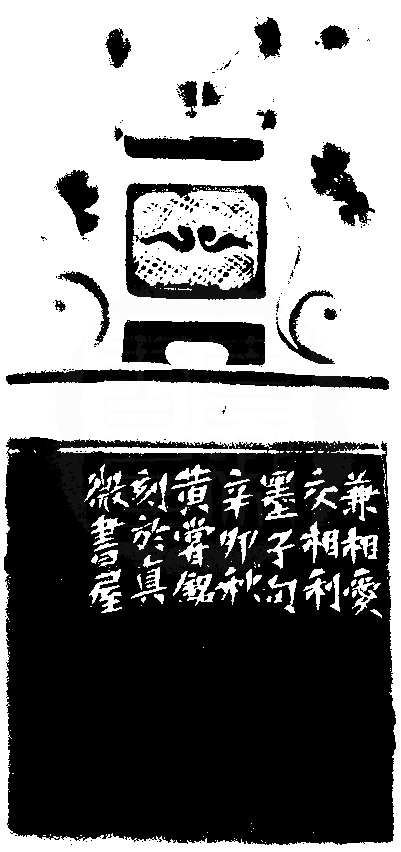 兼相愛
交相利
墨子句
辛卯秋
黄嘗銘
刻於真
微書屋